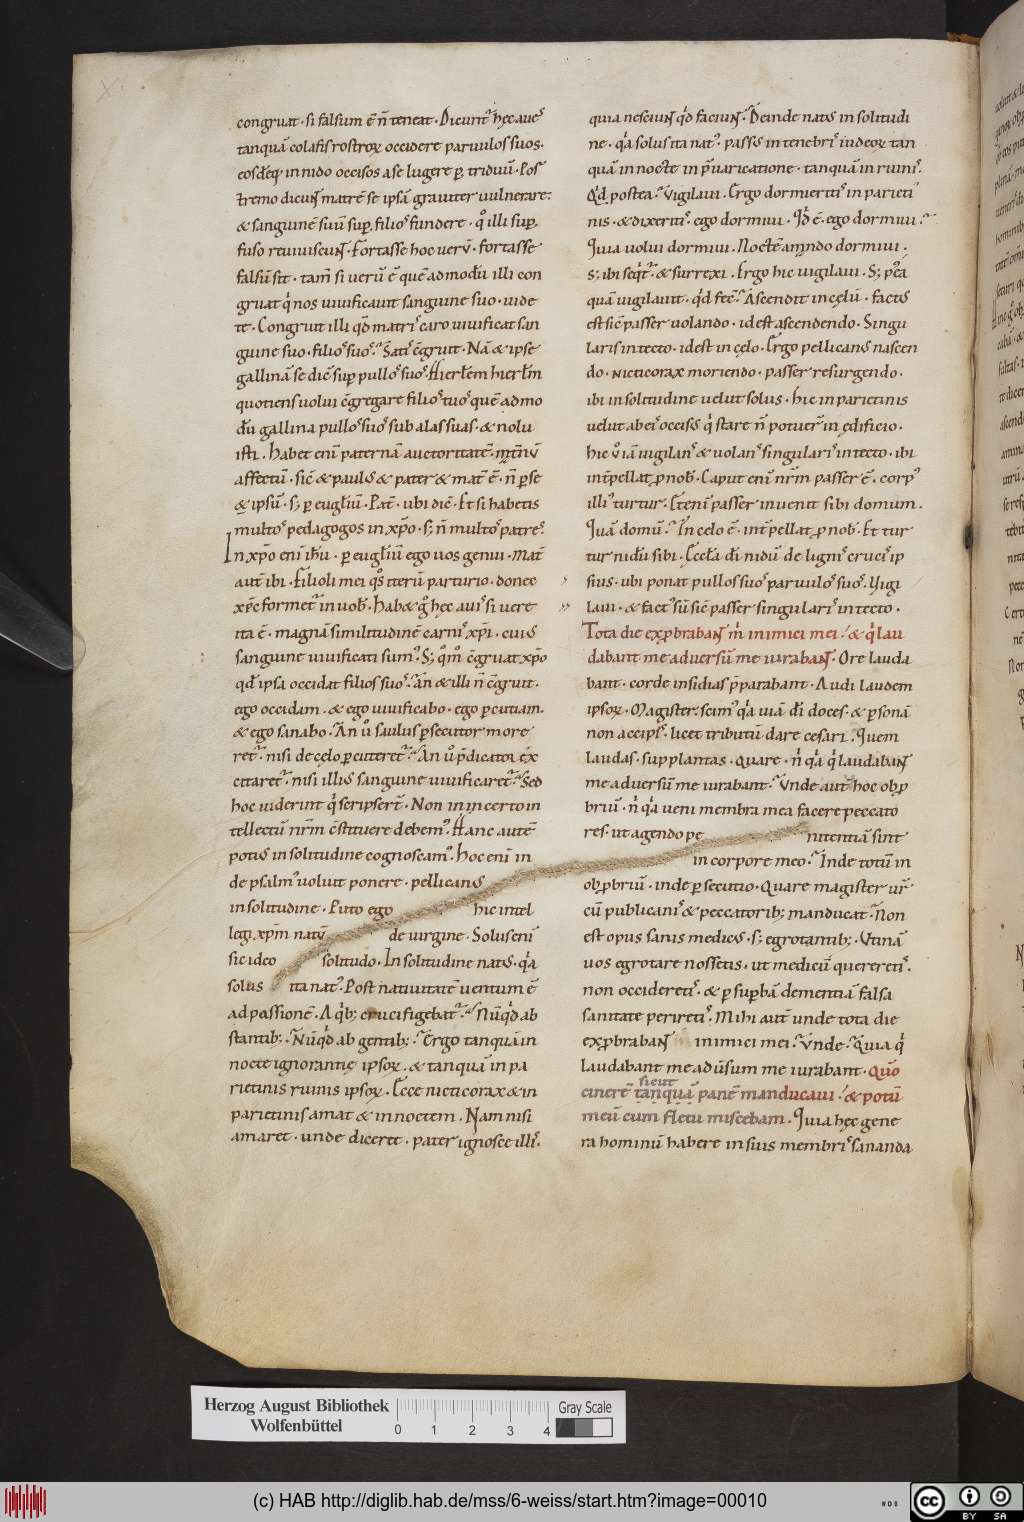 congruat · si falsum ē n̄ teneat · Dicunt᷑ hęc aues
tanquā colafis rostroꝝ occidere paruulos suos ·
eosdēq; in nido occisos a se lugere ꝑ triduū · Pos
tremo dicun̄t matrē se ipsā grauiter uulnerare:
& sanguinē suū suꝑ filios fundere · q° illi suꝑ
fuso reuiuiscun̄t · Fortasse hoc uerū · fortasse
falsū sit · tam̄ si uerū ē quē admodū illi con
gruat q̇ nos uiuificauit sanguine suo · uide
te · Congruit illi qđ matris caro uiuificat san
guine suo · filios suos · Satis c̄gruit · Nā & ipse
gallinā se dic̄ suꝑ pullos suos · Hierl̄em hierl̄m
quotiens uolui c̄gregare filios tuos quē admo
dū gallina pullos suos sub alas suas · & nolu
isti · Habet enī paternā auctoritatē · mat̄nū
affectū · sic̄ & paulꝰ & pater & mat̄ ē · n̄ ꝑ se
& ipsū · s; ꝑ eugl̄iū · Pat̄ · ubi dic̄ · Et si habetis
multos pedagogos in xp̄o · s; n̄ multos patres
In xp̄o enī ih̄u · ꝑ eugl̄iū ego uos genui · Mat̄
aut̄ ibi · Filioli mei qꝰs iterū parturio · donec
xp̄c formet᷑ in uob̄ · Habet ḡ hęc auis si uere
ita ē · magnā similitudinē carnis xp̄i · cuiꝰ
sanguine uiuificati sumꝰ · S; quom̄ c̄gruat xp̄o
qđ ipsa occidat filios suos · An & illi n̄ c̄gruit ·
ego occidam · & ego uiuificabo · ego ꝑcutiam ·
& ego sanabo · An ů saulus ꝑsecutor more
ret᷑ · nisi de cęlo ꝑcuteret᷑ · An ů p̄dicator ex
citaret᷑ · nisi illiꝰ sanguine uiuificaret᷑ · Sed
hoc uiderint q̇ scripser̄t · Non in incerto in
tellectū nr̄m c̄stituere debemꝰ · Hanc autē
potiꝰ in solitudine cognoscamꝰ · Hoc enī in
de psalmꝰ uoluit ponere · pellicanꝰ
in solitudine · Puto ego hic intel
legi xp̄m natū de uirgine · Solus enī
sic ideo solitudo · In solitudine natꝰ · q̇a
solus ita natꝰ · Post natiuitatē uentum ē
ad passionē · A q̇b; crucifigebat᷑ · Nūqđ ab
stantib; · Nūqđ ab gentib; · Ergo tanquā in
nocte ignorantię ipsoꝝ · & tanquā in pa
rietinis ruinis ipsoꝝ · Ecce nicticorax & in
parietinis amat & in noctem · Nam nisi
amaret · unde diceret · pater ignosce illis ·
quia nesciun̄t qđ faciun̄t · Deinde natꝰ in solitudi
ne · q̇a solus ita natꝰ · passꝰ in tenebris iudeoꝝ tan
quā in nocte in p̄uaricatione · tanquā in ruinis ·
Qđ postea · Vigilaui · Ergo dormierus in parieti
nis · & dixeritis · ego dormiui · Qđ ē · ego dormiui ·
Quia uolui dormiui · Noctē amando dormiui ·
S; ibi seq̇t᷑ · & surrexi · Ergo hic uigilaui · S; postea
quā uigilauit · qđ fec̄ · Ascendit in cęlū · factꝰ
est sic̄ passer uolando · id est ascendendo · Singu
laris in tecto · id est in cęlo · Ergo pellicanꝰ nascen
do · nicticorax moriendo · passer resurgendo ·
ibi in solitudine uelut solus · hic in parietinis
uelut ab eis occisꝰ q̇ stare n̄ potuer̄ in ędificio ·
hic ů iā uigilans & uolans singularis in tecto · ibi
int̄pellat ꝓ nob̄ · Caput enī nr̄m passer ē · corpꝰ
illiꝰ turtur · Et̄enī passer inuenit sibi domum ·
Quā domū · In cęlo ē · int̄pellat ꝓ nob̄ · Et tur
tur nidū sibi · Eccl̄a dī nidū de lignis crucis ip
sius · ubi ponat pullos suos paruulos suos · Uigi
laui · & factꝰ sū sic̄ passer singularis in tecto ·
Tota die exꝓbraban̄t m̄ inimici mei · & q̇ lau
dabant me aduersū me iuraban̄t · Ore lauda
bant · corde insidias p̄parabant · Audi laudem
ipsoꝝ · Magister · scimꝰ q̇a uiā dī doces · & ꝑsonā
non accipis · licet tributū dare cesari · Quem
laudas · supplantas · Quare · n̄ q̇a q̇ laudaban̄t
me aduersū me iurabant · Vnde aut̄ hoc obꝓ
briū · n̄ q̇a ueni membra mea facere peccato
res · ut agendo pe nitentiā sint
in corpore meo · Inde totū in
obꝓbriū · inde ꝑsecutio · Quare magister ur̄
cū publicanis & peccatorib; manducat · Non
est opus sanis medicꝰ · s; egrotantib; · Vtinā
uos egrotare nossetis · ut medicū quereretis ·
non occideretis · & ꝑ suꝑbā dementiā falsa
sanitate periretis · Mihi aut̄ unde tota die
exꝓbraban̄t inimici mei · Vnde · Quia q̇
laudabant me adūsum me iurabant · Quō
sicut
cinerē tanquā panē manducaui · & potū
meū cum fletu miscebam · Quia hęc gene
ra hominū habere in suis membris sananda
Herzog August Bibliothek
Wolfenbüttel
0 1 2 3 4
Gray Scale
(c) HAB http://diglib.hab.de/mss/6-weiss/start.htm?image=00010
WDB
cc BY SA